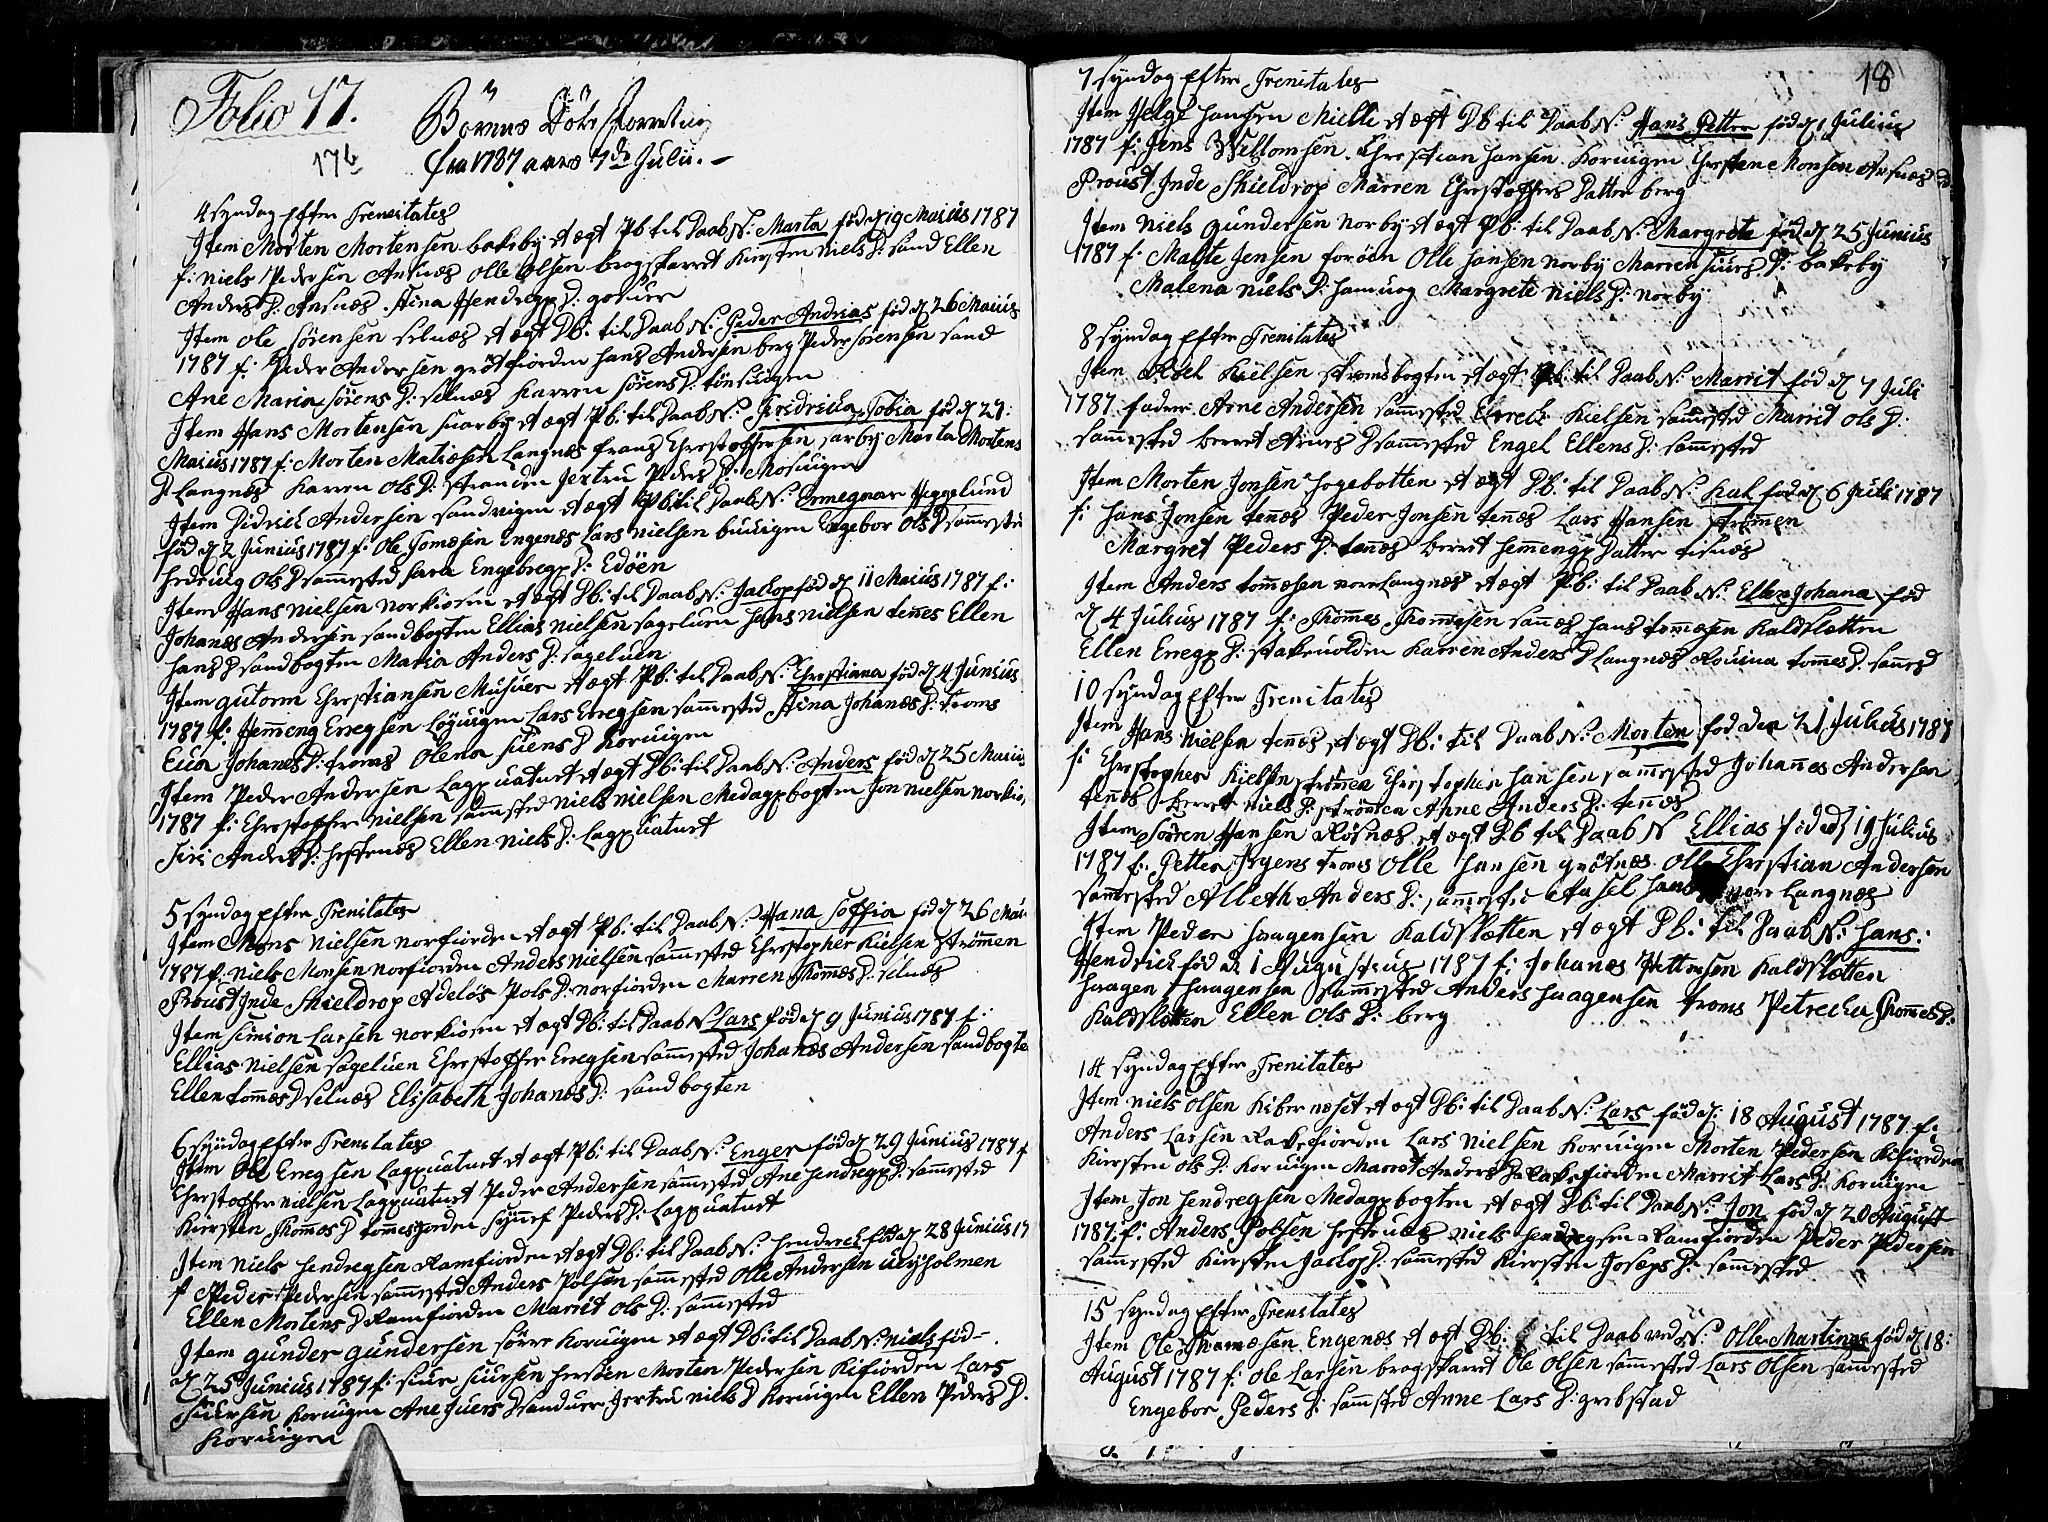 Folio 17.
176
Börnes Döbe Forretning
fra 1787 aars 7de Julii. –
4 Syndag Efter Trenitates
Item Morten Mortensen bakeby et ægt Pb til Daab N: Marta föd d 19 Maius 1787
f: Niels Pedersen Ansnæs Olle Olsen bogskarret Kirsten Niels D: sand Ellen
Anders D: Ansnæs. Stina Hendregx D:
Item Ole Sörensen selnæs et ægt Db: til Daab N: Peder Andreas föd d 26 Maius
1787 f: Peder Andersen grötfiorden Hans Andersen berg Peder Sörensen sand
Ane Maria Sörens D: selnæs Karren Sörens D: tönsuigen
Item Hans Mortensen suarby et ægt Pb: til Daab N: Fredricka Tobia föd d 27:
Maius 1787 f: Morten Matiæsen Langnæs frans Chrestoffersen sarby Marta Mortens
D: Langnæs Karren Ols D: stranden Jertru Peders D: Mosuigen
Item Didrich Andersen sandvigen et ægt Pb til Daab N: Ermegnar Heggelund
föd d 2 Junius 1787 f: Ole Tomæsen Engenæs Lars Nielsen buuigen Engebor Ols D sammested
Hedeuig Ols D sammested Sara Engebregx D: Edöen
Item Hans Nielsen norkiosen et ægt Db: til Daab N: Jacop föd d 11 Maius 1787 f:
Johanes Andersen sandbogten Ellias Nielsen sageluen Hans Nielsen tennes Ellen
Hans D sandbogten Maria Anders D: sageluen
Item gutorm Chrestiansen Musuer et ægt Pb: til Daab N: Chrestianna föd d 4 Junius
1787 f: Hemmeng Erregsen Löguigen Lars Erregsen sammested Stina Johanes D: troms
Eua Johanes D: troms Olena Suens D Koruigen
Item Peder Andersen Lagxuatnet et ægt Db: til Daab N: Anders föd d 25 Maius
1787 f: Chrestoffer Nielsen sammested Niels Nielsen Medagxbogten Jon Nielsen norkios
Siri Anders D: Hestenæs Ellen Niels D: Lagxuatnet
5 Syndag Efter Trenitates
Item Mons Nielsen norfiorden et ægt Pb: til Daab N: Hana Soffia föd d 26 Mai
1787 f: Niels Monsen norfiorden Anders Nielsen sammested Chrestopher Kielsen Strömmen
Proust Inde Skieldrop Adelös Pols D: norfiorden Marren Thommæs D: selnæs
Item Simion Larsen norkiosen et ægt Db: til Daab N Lars föd d 9 Junius 1787 f:
Ellias Nielsen sageluen Chrestoffer Erregsen sammested Johanes Andersen sandbogte
Ellen tommæs D selnæs Elisabeth Johanes D: sandbogten
6 Syndag Efter Trenitates
Item Ole Erregsen Lagxuatnet et ægt Pb: til Daab N: Enger föd d 29 Junius 1787 f
Chrestoffer Nielsen Lagxuatnet Peder Andersen sammested Ane Hendregx D: sammested
Kiersten Thommes D tommesjorden Synnef Peders D: Lagxuatnet
Item Niels Hendregsen Ramfiorden et ægt Db: til Daab N: Hendreck föd d 28 Junius 17
f Peder Pedersen sammested Anders Polsen sammested Olle Andersen
Ellen Mortens D Ramfiorden Marrit Ols D: sammested
Item gunder gundersen Sörre Koruigen et ægt Db: til Daab N: Niels föd –
d 25 Junius 1787 f: Siuer Siuersen Morten Pedersen Kifiorden Lars
Siuersen Koruigen Ane Juers D Jertru Niels D Koruigen Ellen Peders D.
Koruigen
18
7 Syndag Efter Trenitates
Item Helge Hansen Mielle et ægt Db til Daab N: Hans Petter föd d 1 Julius
1787 f: Jens Wellomsen. Chrestian Hansen. Koruigen Chrestene Monsen Ansnæs
Proust Inde Skieldrop Marren Chrestoffers Datter berg
Item Niels gundersen norby et ægt Pb: til Daab N: Margrete föd d 25 Junius
1787 f: Malte Jensen foröen Olle Jansen norby Marren Juers D: bakeby
Malena Niels D: Margrete Niels D: norby
8 Syndag Efter Trenitates
Item Kielsen stromsbogten et ægt Pb: til Daab N: Marrit föd d 7 Juli
1787 fadere Arne Andersen sammested Kielsen sammested Marrit Ols D:
sammested berret Arnes D sammested Engel Ellens D: sammested
Item Morten Jonsen Hogebotten et ægt Db: til Daab N: Kal föd d 6 Juli 1787
f: Hans Jonsen tenæs Peder Jonsen tenæs Lars Hansen Strömen
Margret Peders D: tenæs berret Hemmengx Datter
Item Anders tommæsen norr Langnæs et ægt Pb: til Daab N: Ellen Johana föd
d 4 Julius 1787 f: Thommes Thommesen Hans tommæsen Kaldslætten
Ellen Erregx D: stakeuolden Karren Anders D Langnæs Rouina tommes D:
10 Syndag Efter Trenitates
Item Hans Nielsen tenæs et ægt Db: til Daab N: Morten föd den 21 Julius 1787
f: Chrestopher Kielsen strömen Chrestopher Hansen sammested Johannes Andersen
tenæs berret Niels D: strömen Anne Anders D: tenæs
Item Sörren Hansen Rösnæs et ægt Db til Daab N Ellias föd d 19 Julius
1787 f: Petter Jrgens troms Olle Hansen grötnæs Olle Chrestian Andersen
sammested Alleth Anders D: sammested Hans norr Langnæs
Item Peder Haagensen Kaldslætten et ægt Db: til Daab N: Hans:
Hendrick föd d 1 Augustus 1787 f: Johanes Pettersen Kaldslætten
Haagen Haagensen sammested Anders Haagensen troms Petrecka Thommes D:
Kaldslætten Ellen Ols D: berg
14 Syndag Efter Trenitates
Item Niels Olsen Kiber næset et ægt Db: til Daab N: Lars föd d: 18 August 1787 f:
Anders Larsen Rakefiorden Lars Nielsen Koruigen Morten Pedersen Kifiorden
Kiersten Ols D: Koruigen Marret Anders D Rakefiorden Marrit Lars D: Koruigen
Item Jon Hendregsen Medagxbogten et ægt Db: til Daab N: Jon föd d 20 August
1787 f: Anders Polsen Niels Hendregsen Ramfiorden Peder Pedersen
sammested Kiersten Jacops D: sammested Kiersten Josæps D: sammested
15 Syndag Efter Trenitates
Item Ole Thomæsen Engenæs et ægt Db: til Daab ved N: Olle Martinus föd d 18:
August 1787 f: Ole Larsen bragskarret Ole Olsen sammested Lars Olsen sammested
Engebor Peders D: sammested Anne Lars D: grebstad